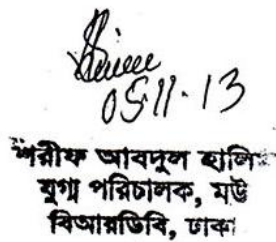 05.11.13
শরীফ আবদুল হালি
যুগ্ম পরিচালক, মউ
বিআরডিবি, ঢাকা